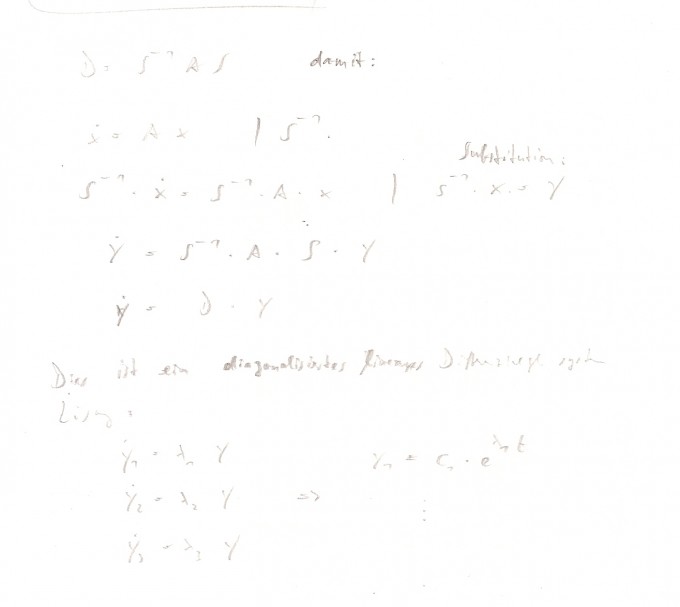 D = S⁻¹ A S damit:
ẋ = A x | S⁻¹.
Substitution:
S⁻¹ · ẋ = S⁻¹ · A · x | S⁻¹ · x = y
ẏ = S⁻¹ · A · S · y
ẏ = D · y
Dies ist ein diagonalisiertes lineares Differenzialgl. system
Lösung:
ẏ₁ = λ₁ y y₁ = C₁ · e^{λ₁ t}
ẏ₂ = λ₂ y => ⋮
ẏ₃ = λ₃ y